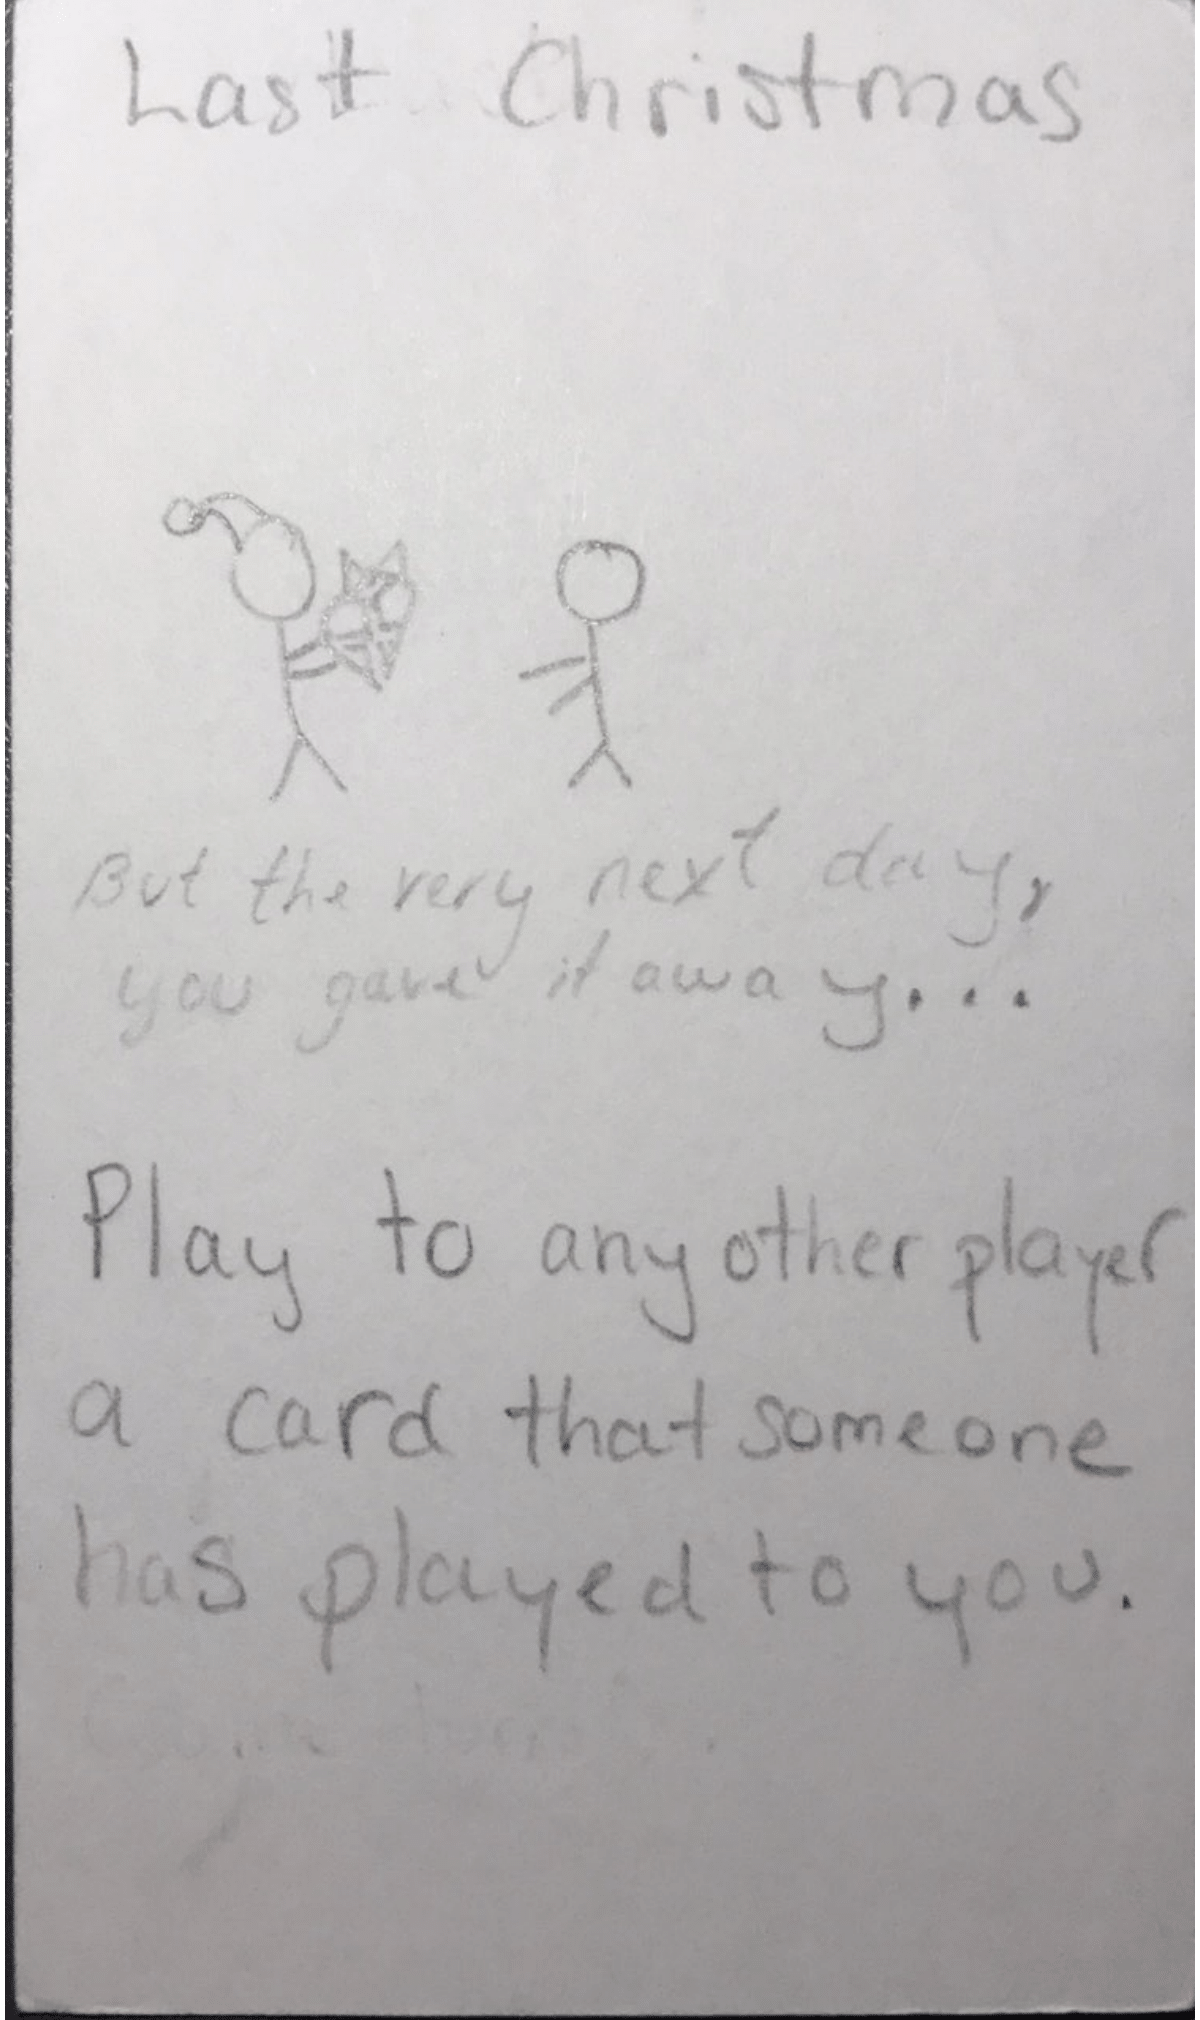 Last Christmas
But the very next day,
you gave it away...
Play to any other player
a card that someone
has played to you.